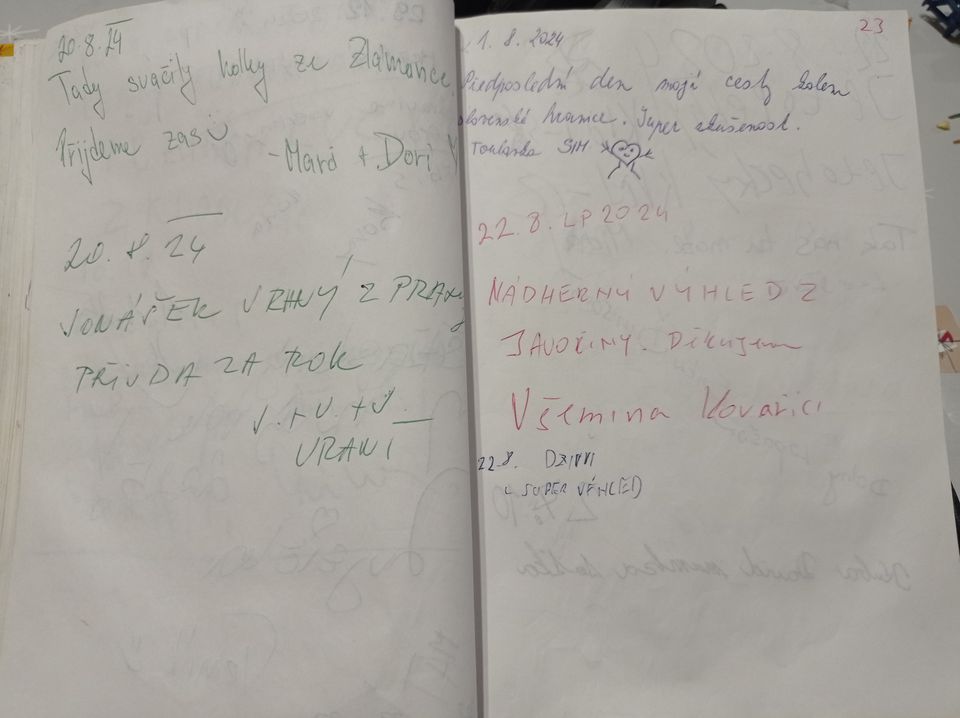 20.8.24
Tady svačily holky ze Zlámance
Přijdeme zas
- Maró + Dori
20. 8. 24
JONÁŠEK VRANÝ Z PRAHY
PŘIJDA ZA ROK
J. + V. + J.
VRANÍ
23
1. 8. 2024
Předposlední den mojí cesty kolem
slovenské hranice. Super zkušenost.
Toulavka SIH
22.8. LP 2024
NÁDHERNÝ VÝHLED Z
JAVOŘINY. Děkujem
Všemina Kovaříci
22.8.
SUPER VÝHLED